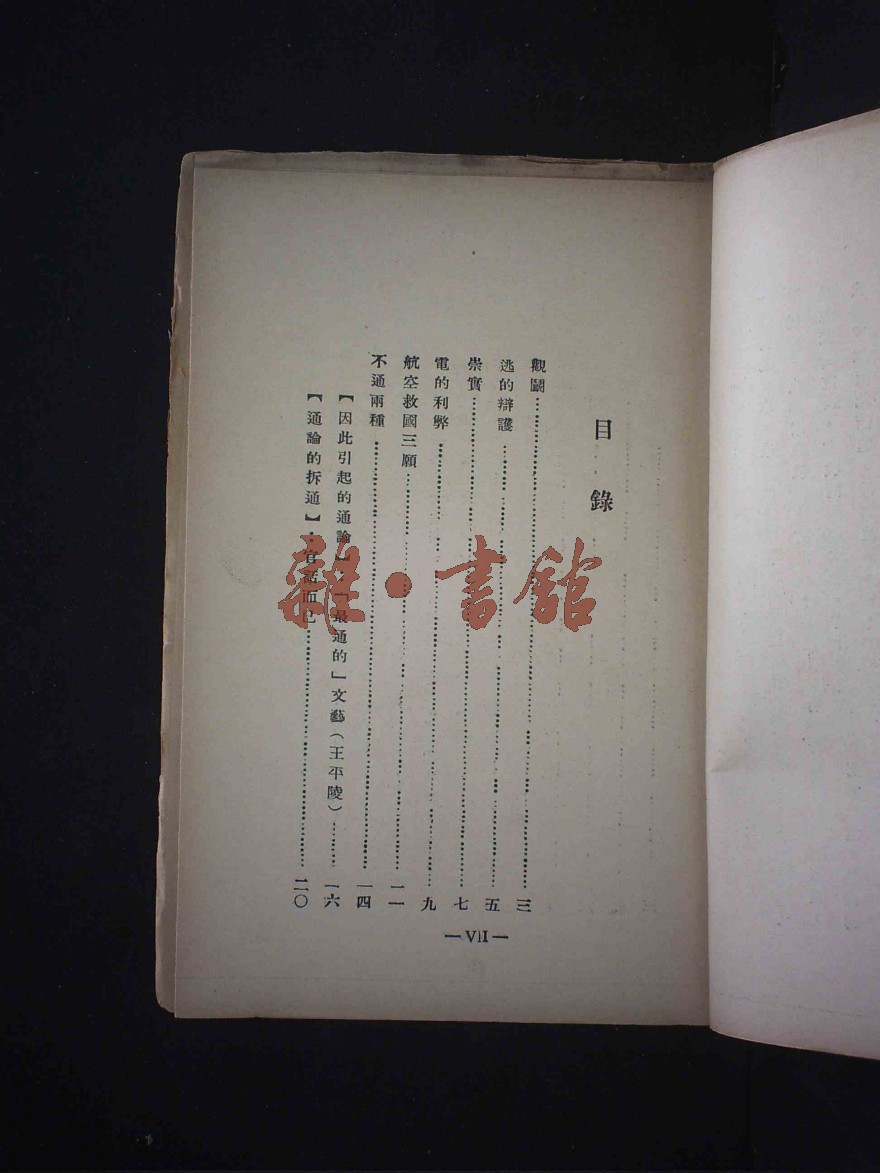 目錄
觀鬬……三
逃的辯護……五
崇實……七
電的利弊……九
航空救國三願……一一
不通兩種……一四
【因此引起的通論】：「最通的」文藝（王平陵）……一六
【通論的拆通】：官話而已……二〇
—VII—
雜·書館